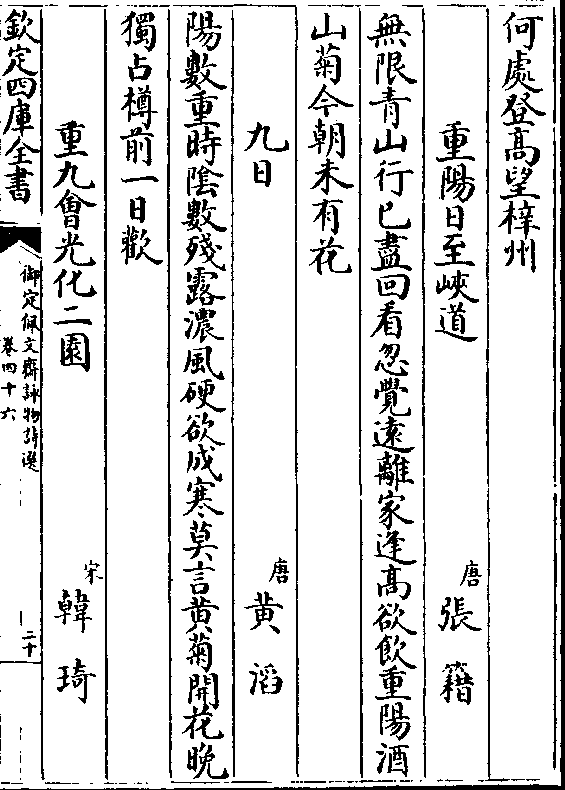 何處登髙望梓州
重陽日至峽道
唐 張籍
無限青山行已盡回看忽覺遠離家逢髙欲飲重陽酒
山菊今朝未有花
九日
唐 黄滔
陽數重時陰數殘露濃風硬欲成寒莫言黄菊開花晩
獨占樽前一日歡
重九會光化二園
宋 韓琦
欽定四庫全書
御定佩文齋詠物詩選
卷四十六
二十